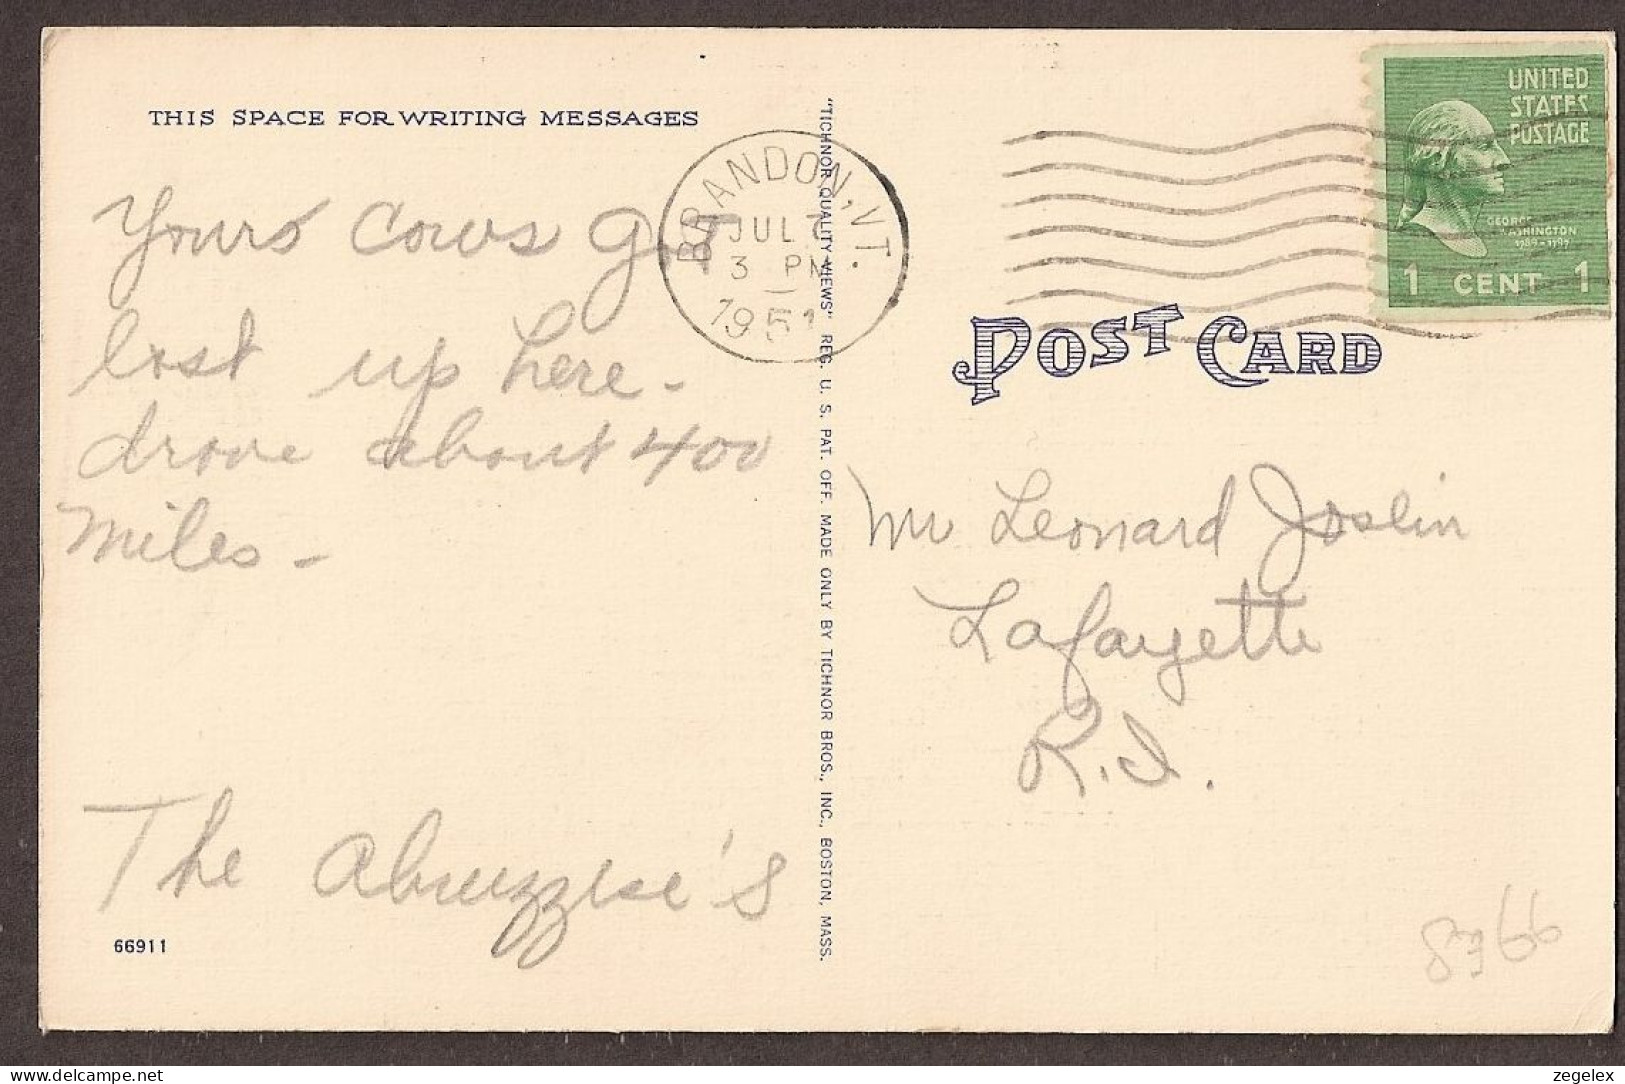 THIS SPACE FOR WRITING MESSAGES
Yours cows got
lost up here -
drove about 400
miles -
The Abruzzese's
66911
"TICHNOR QUALITY VIEWS" REG. U. S. PAT. OFF. MADE ONLY BY TICHNOR BROS., INC., BOSTON, MASS.
BRANDON, VT.
JUL
3 PM
1951
UNITED
STATES
POSTAGE
GEORGE
WASHINGTON
1789-1797
1 CENT 1
POST CARD
Mr Leonard Joslin
Lafayette
R.I.
8766
zegelex
www.delcampe.net